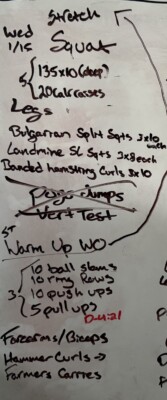 Stretch
Wed
1/15
Squat
5
135x10 (deep)
20 Cal
Legs
Bulgarian Split Sqts 3x10
each
Landmine SL Sqts 3x8 each
Banded hamstring Curls 3x10
Pogo Jumps
Vert Test
ST
Warm Up WO
3
10 ball slams
10 ring Rows
10 push ups
5 pull ups
Forearms/Biceps
Hammer Curls →
Farmers Carries